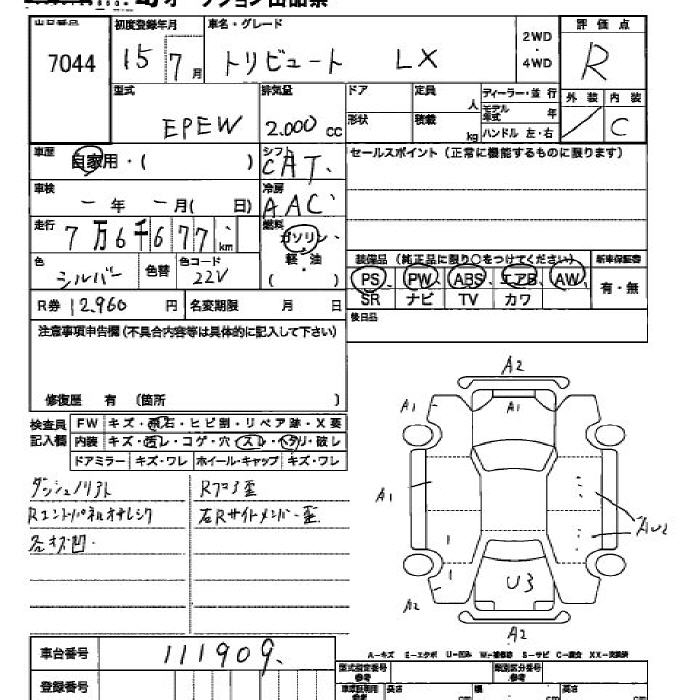 オークション出品票
出品番号 初度登録年月 車名・グレード 2WD・4WD 評価点
7044 15 7月 トリビュート LX R
型式 排気量 ドア 定員 人 ディーラー・並行 外装 内装
EPEW 2.000 cc 形状 積載 kg モデル年式 年 / C
ハンドル 左・右
車歴 シフト セールスポイント (正常に機能するものに限ります)
自家用・( ) CAT
車検 冷房
ー年 ー月( 日) AAC
走行 燃料
7万6千677km ガソリン・軽・油
( )
装備品 (純正品に限り○をつけてください) 新車保証書
色 色替 色コード
シルバー 22V
PS PW ABS エアB AW 有・無
SR ナビ TV カワ
R券 12.960 円 名変期限 月 日
後日品
注意事項申告欄 (不具合内容等は具体的に記入して下さい)
修復歴 有 (箇所 )
検査員記入欄
FW キズ・飛石・ヒビ割・リペア跡・X要
内装 キズ・汚レ・コゲ・穴・スレ・ヘタリ・破レ
ドアミラー キズ・ワレ ホイール・キャップ キズ・ワレ
ダッシュノリアト
Rエンドパネルオサレシワ
各キズ凹
Rフロア歪
右Rサイドメンバー歪
A2
A1 A1
A1
AU2
U3
A2
A2
A-キズ E-エクボ U-凹み W-補修跡 S-サビ C-腐食 XX-交換済
車台番号 111909
登録番号
型式指定番号 参考 類別区分番号 参考
車庫証明用 参考 長さ cm 幅 cm 高さ cm